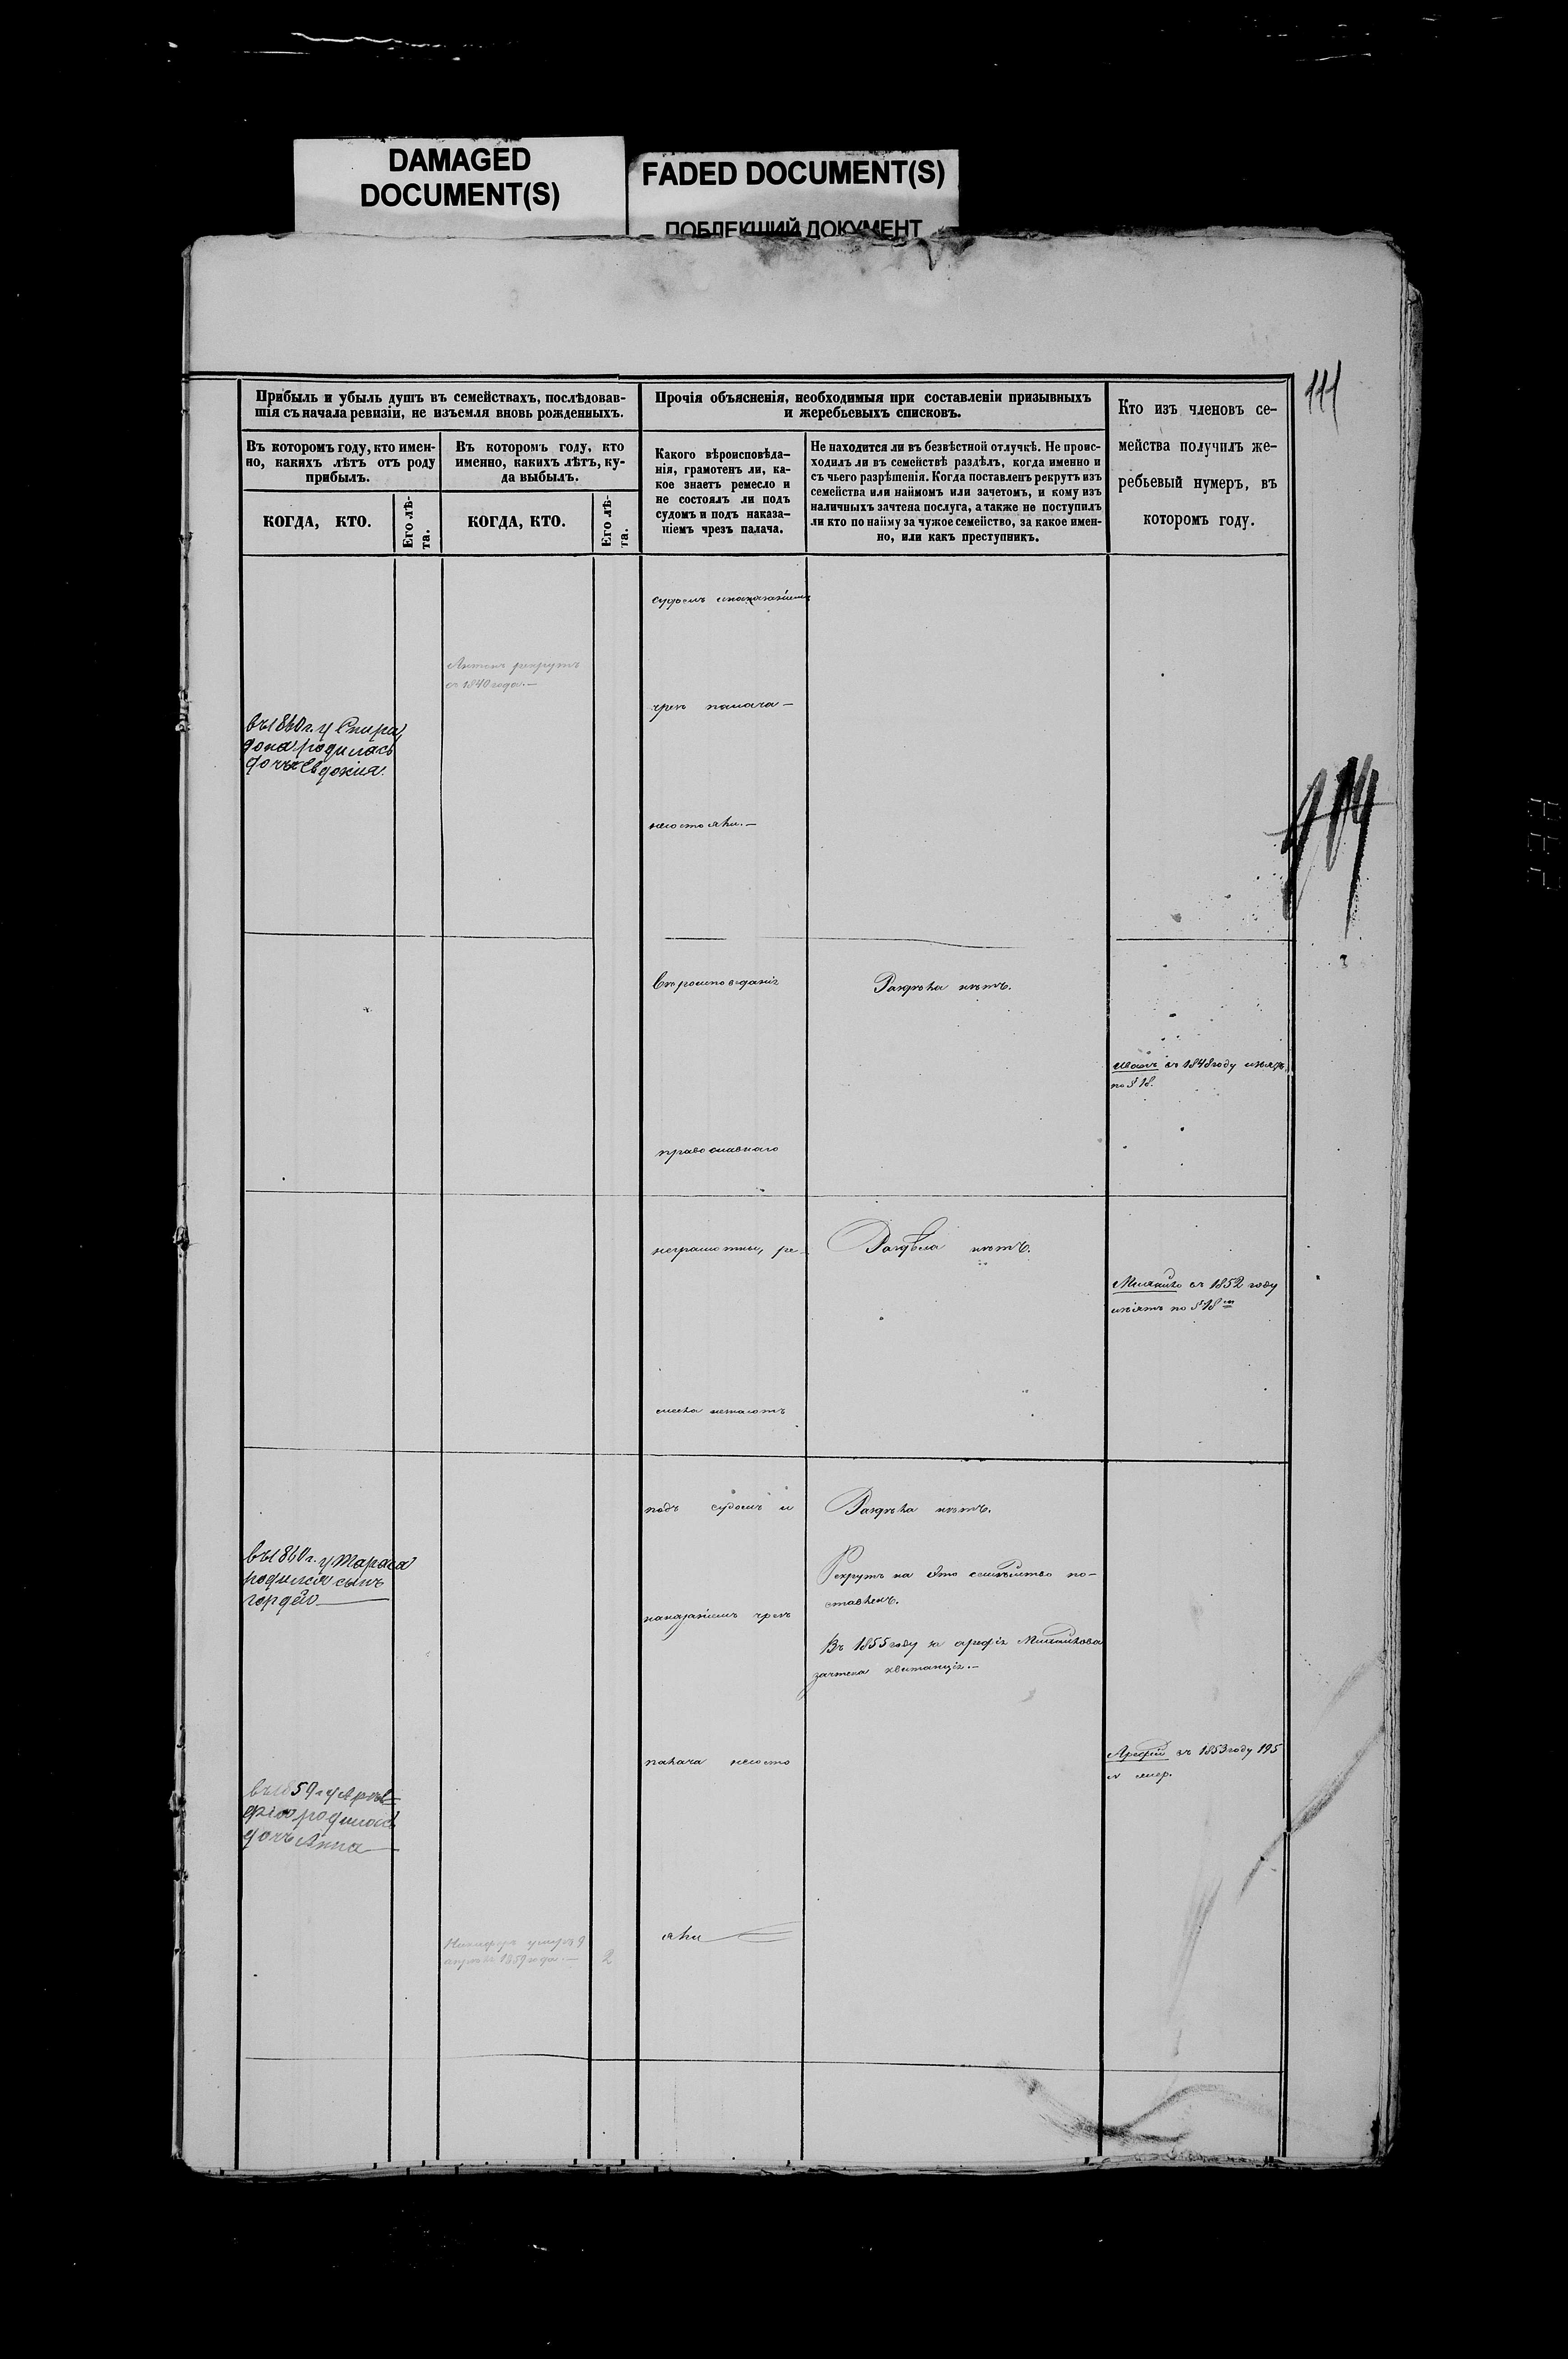 DAMAGED
DOCUMENT(S)
FADED DOCUMENT(S)
ПОБЛЕКШИЙ ДОКУМЕНТ
111
Прибыль и убыль душъ въ семействахъ, послѣдовав-
шія съ начала ревизіи, не изъемля вновь рожденныхъ.
Въ которомъ году, кто имен-
но, какихъ лѣтъ отъ роду
прибылъ.
КОГДА, КТО.
Его лѣ-
та.
Въ которомъ году, кто
именно, какихъ лѣтъ, ку-
да выбылъ.
КОГДА, КТО.
Его лѣ-
та.
Прочія объясненія, необходимыя при составленіи призывныхъ
и жеребьевыхъ списковъ.
Какого вѣроисповѣда-
нія, грамотенъ ли, ка-
кое знаетъ ремесло и
не состоялъ ли подъ
судомъ и подъ наказа-
ніемъ чрезъ палача.
Не находится ли въ безвѣстной отлучкѣ. Не проис-
ходилъ ли въ семействѣ раздѣлъ, когда именно и
съ чьего разрѣшенія. Когда поставленъ рекрутъ изъ
семейства или наймомъ или зачетомъ, и кому изъ
наличныхъ зачтена послуга, а также не поступилъ
ли кто по найму за чужое семейство, за какое имен-
но, или какъ преступникъ.
Кто изъ членовъ се-
мейства получилъ же-
ребьевый нумеръ, въ
которомъ году.
судомъ и наказаніемъ
Антонъ рекрутъ
съ 1840 года.—
чрезъ палача—
въ 1860 г. у Спири
дона родилась
дочь Евдокія.
несостояли.—
вѣроисповеданія
Раздѣла нѣтъ.
Иванъ въ 1848 году изъятъ
по § 18.
православнаго
неграмотны, ре-
Раздѣла нѣтъ.
въ 1852 году
изъятъ по § 18
месла незнаютъ
подъ судомъ и
Раздѣла нѣтъ.
въ 1860 г. у Тараса
родился сынъ
Гордѣй
Рекрутъ на это семейство по-
ставленъ.
наказаніемъ чрезъ
Въ 1855 году за Арефія
зачтена квитанція.—
палача несосто
Арефій въ 1853 году 195
въ 1859 г. у Аре
фія родилась
дочь Анна
яли
Никифоръ умеръ 9
апрѣля 1859 года.—
2